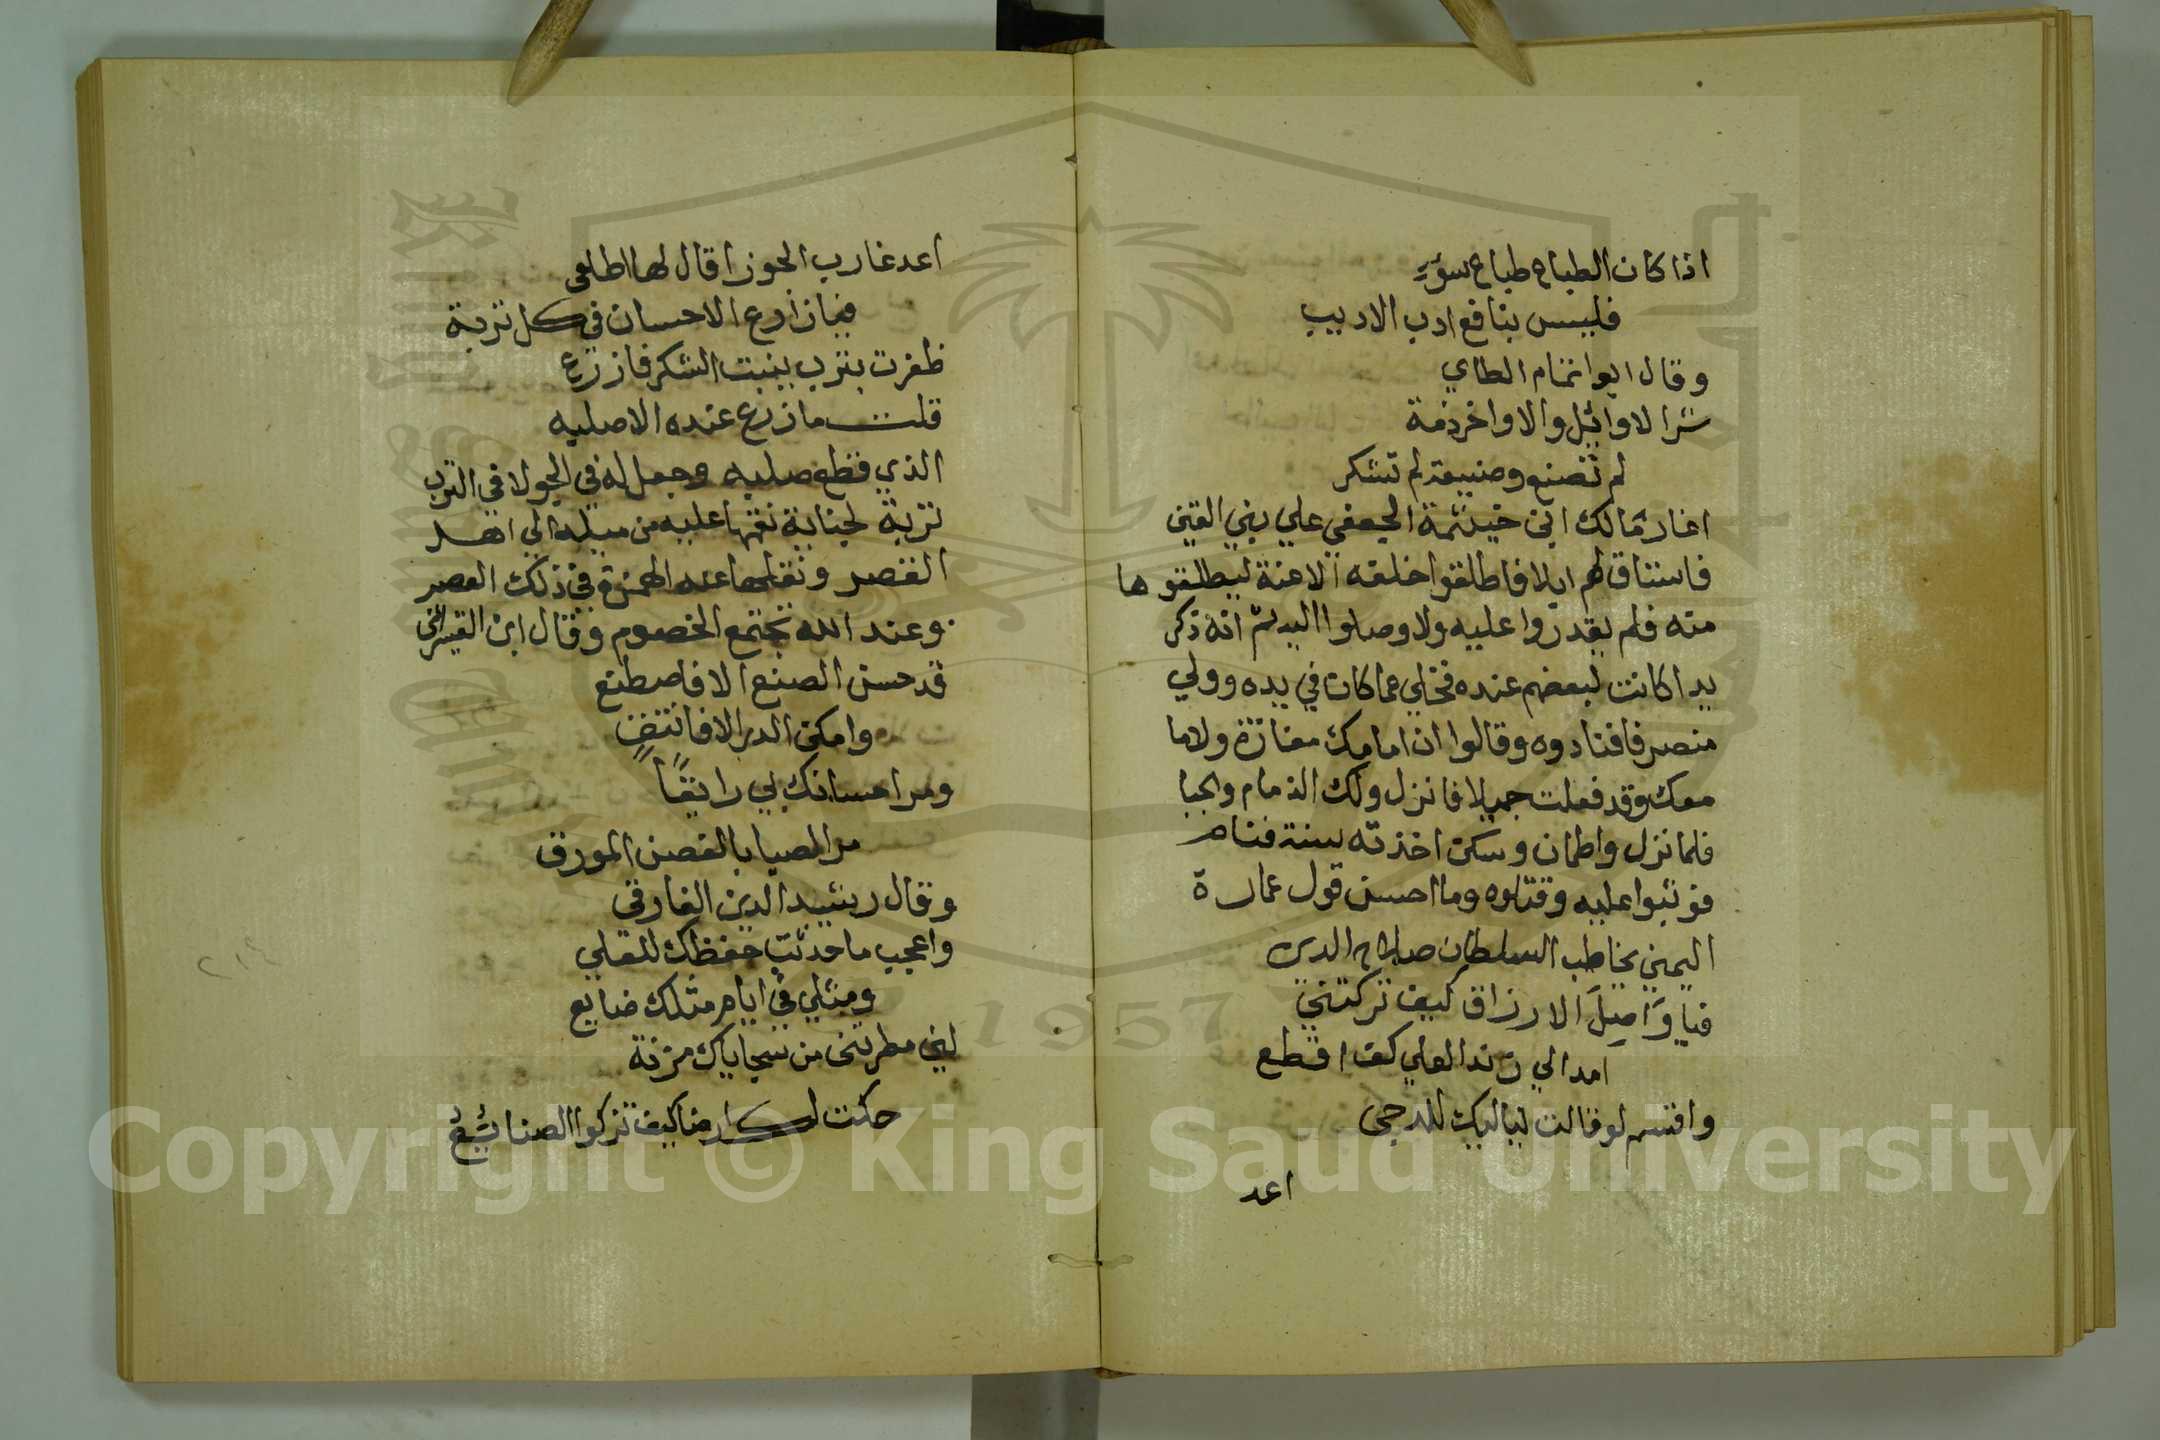 اذا كان الطباع طباع سوء
فليس بنافع ادب الاديب
وقال ابوا تمام الطاي
شر الاوائل والاواخر ذمة
لم تصنع وصنيعة لم تشكر
اغار مالك ابن خيثمة الجعفي علي بني القين
فاستاق لهم ابلا فاطلقوا خلفه الاعنة ليطلقوها
منه فلم يقدروا عليه ولا وصلوا اليه ثم انه ذكر
يدا كانت لبعضهم عنده فخلي عما كان في يده وولي
منصرفا فنادوه وقالوا ان امامك مفازة ولا ما
معك وقد فعلت جميلا فانزل ولك الذمام والحبا
فلما نزل واطمان وسكن اخذته سنة فنام
فوثبوا عليه وقتلوه وما احسن قول عمارة
اليمني يخاطب السلطان صلاح الدين
فيا وَاصِلَ الارزاق كيف تركتني
امد الي زند العلي كف اقطع
واقسم لو قالت لياليك للدجي
اعد
اعد غارب الجوزا قال لها اطلعي
فيا زارع الاحسان في كل تربة
ظفرت بترب ينبت الشكر فازرع
قلت ما زرع عنده الا صليبه
الذي قطع صليبه وجعل له في الحيولا في الترب
تربة لجناية نقمها عليه من ميله الي اهل
القصر ونقلها عنه الهمزة في ذلك العصر
وعند الله تجتمع الخصوم وقال ابن القيسراني
قد حسن الصنع الا فاصطنع
وامكن الدر الا فانتقِ
ومر احسانك بي رايقًا
مر الصبا بالغصن المورق
وقال رشيد الدين الفارقي
واعجب ما حدثت حفظك للعلي
ومثلي في ايام مثلك ضايع
لين مطرتني من سجاياك مزنة
حكت لك ارضا كيف تزكوا الصنائع
٢١٤
Copyright © King Saud University
1957